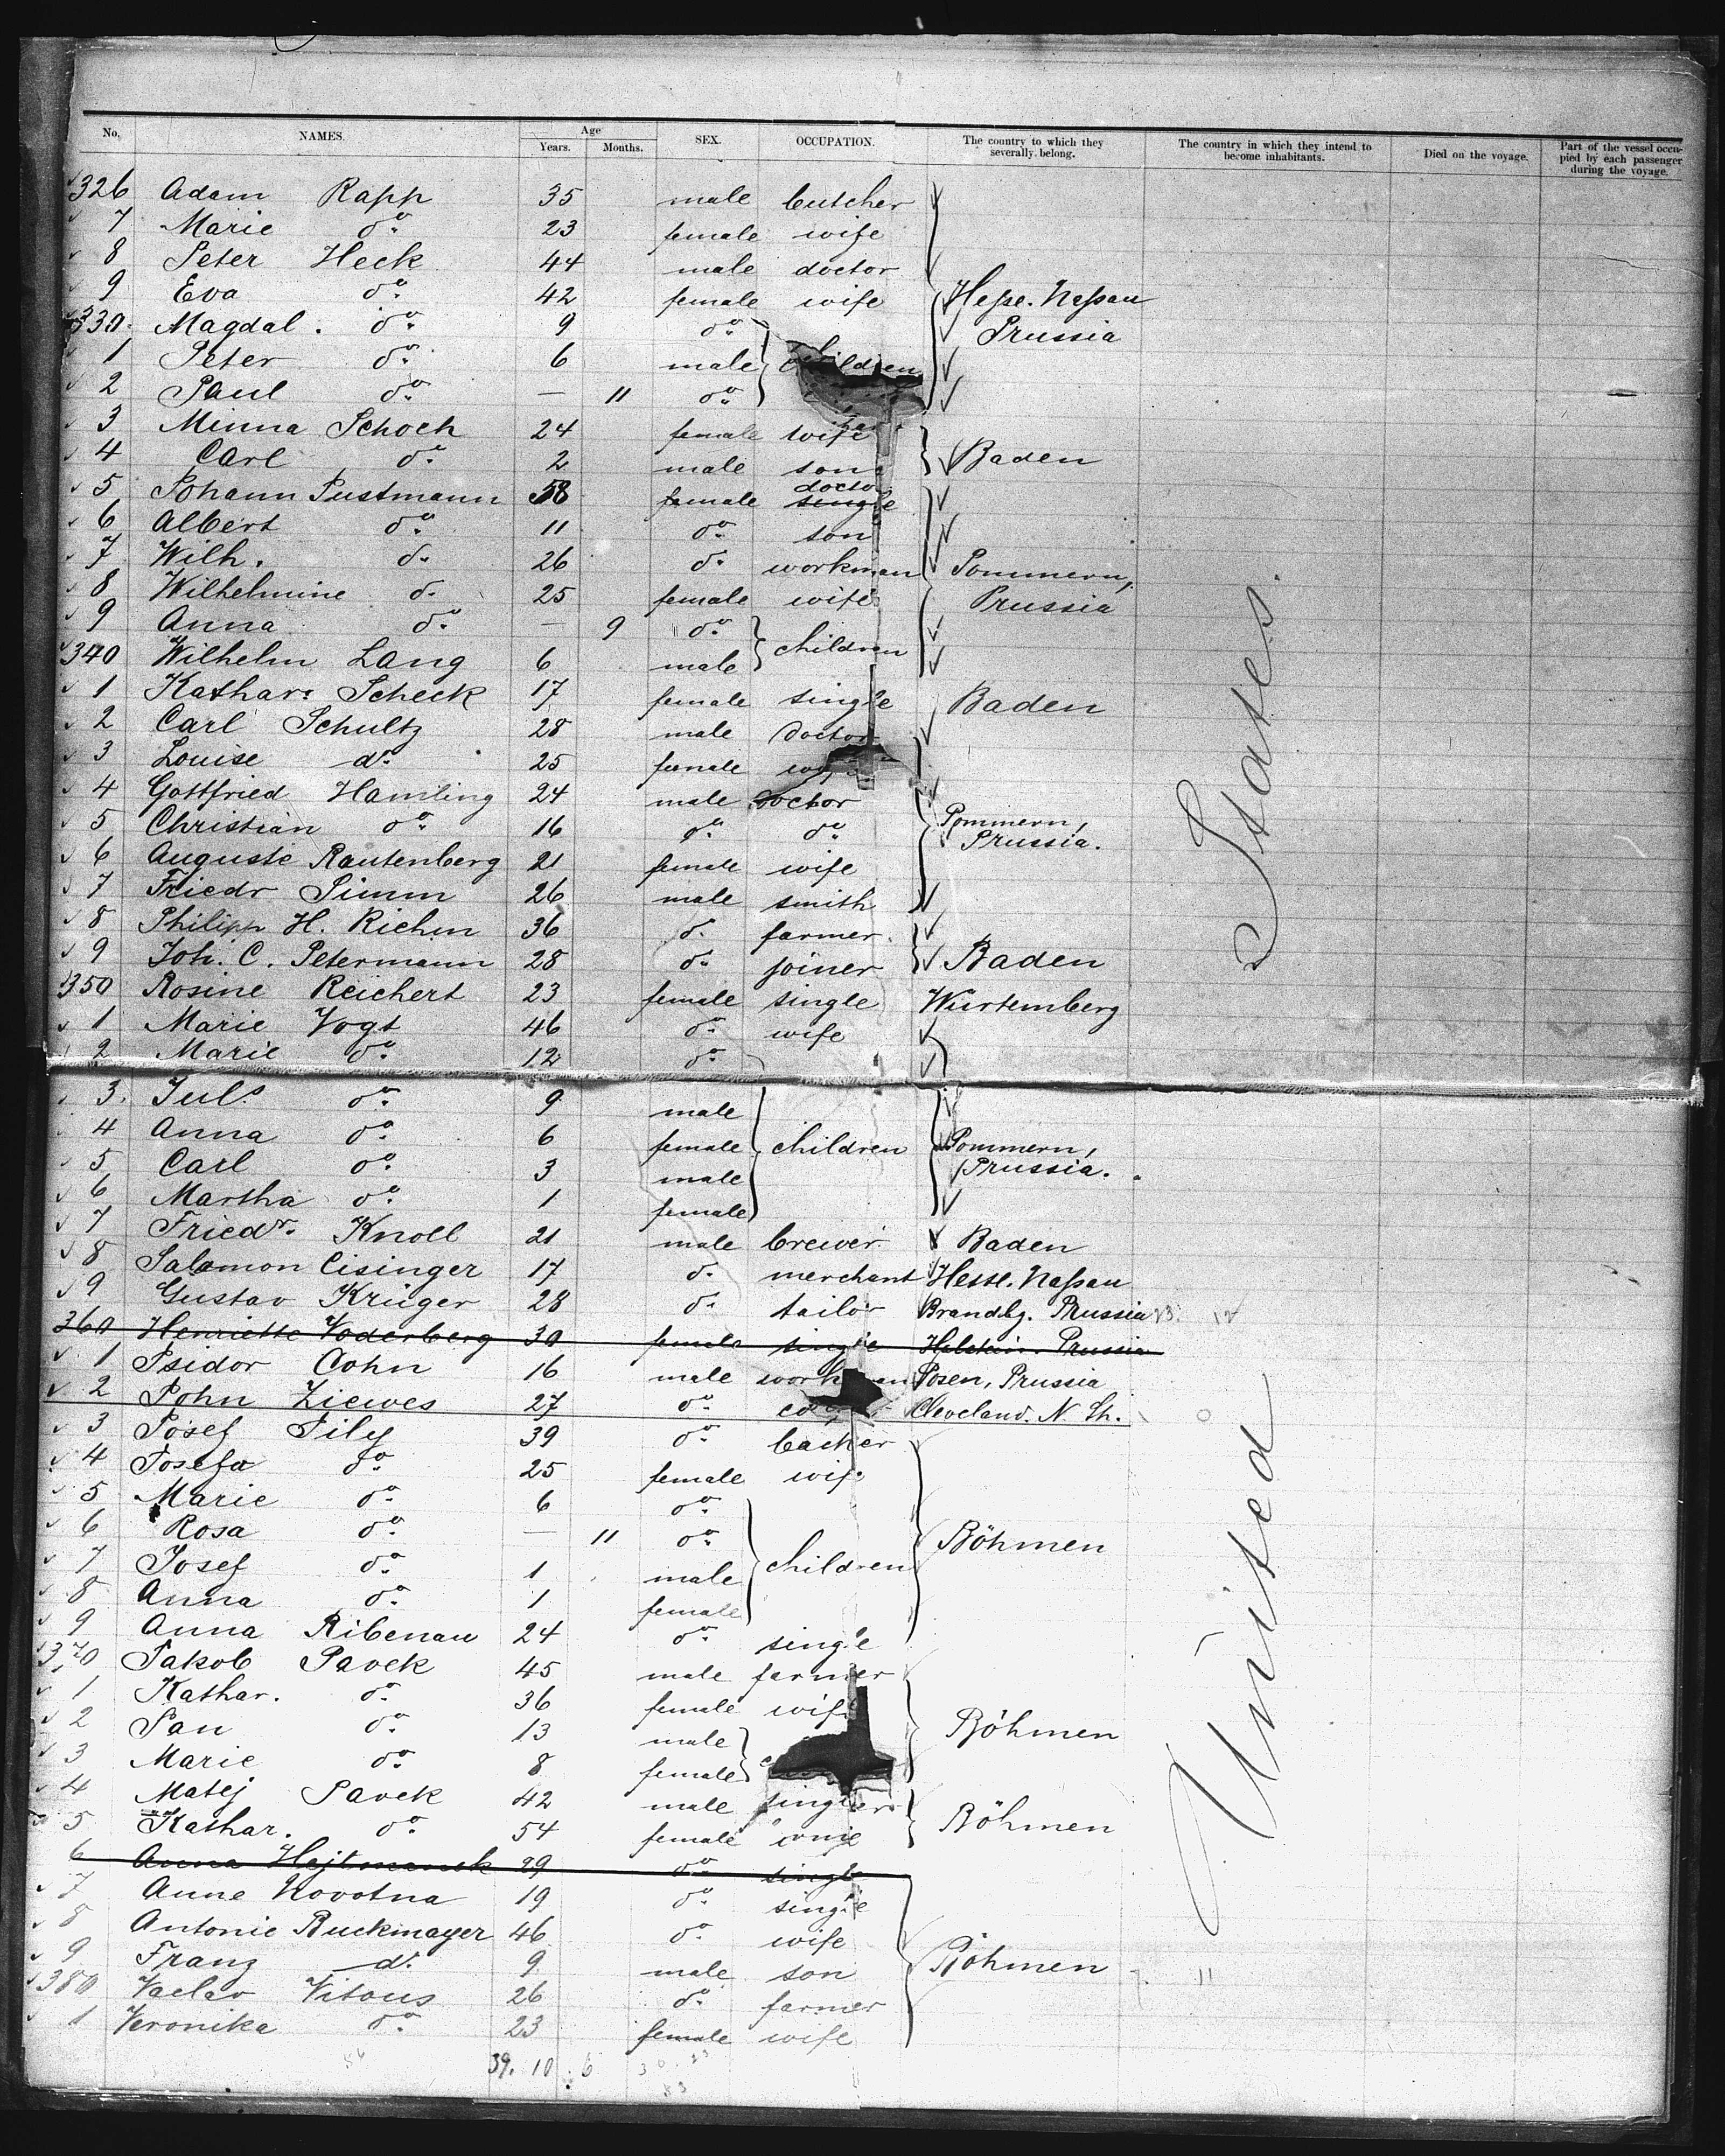 No. NAMES. Age Years. Months. SEX. OCCUPATION. The country to which they severally belong. The country in which they intend to become inhabitants. Died on the voyage. Part of the vessel occupied by each passenger during the voyage.
326 Adam Rapp 35 male butcher
7 Marie do. 23 female wife
8 Peter Heck 44 male doctor
9 Eva do. 42 female wife Hesse. Nassau
330. Magdal. do. 9 do. Prussia
1 Peter do. 6 male children
2 Paul do. — 11 do.
3 Minna Schoch 24 female wife
4 Carl do. 2 male son Baden
5 Johann Pustmann 58 female single docto
6 Albert do. 11 do. son
7 Wilh. do. 26 do. workman Pommern,
8 Wilhelmine do. 25 female wife Prussia
9 Anna do. — 9 do. children
340 Wilhelm Lang 6 male
1 Kathar. Scheck 17 female single Baden
2 Carl Schultz 28 male doctor
3 Louise do. 25 female
4 Gottfried Hamling 24 male doctor
5 Christian do. 16 do. do. Pommern, Prussia.
6 Auguste Rautenberg 21 female wife
7 Friedr Simm 26 male smith
8 Philipp H. Richm 36 do. farmer.
9 Joh. C. Petermann 28 do. joiner Baden
350 Rosine Reichert 23 female single Wurtemberg
1 Marie Vogt 46 do. wife
2 Marie do. 12 do.
3. Juls do. 9 male
4 Anna do. 6 female children Pommern,
5 Carl do. 3 male Prussia.
6 Martha do. 1 female
7 Friedr. Knoll 21 male brewer Baden
8 Salamon Eisinger 17 do. merchant Hesse. Nassau
9 Gustav Krüger 28 do. tailor Brandbg. Prussia
360 Henriette Voderberg 30 female single Holstein. Prussia
1 Isidor Cohn 16 male workman Posen, Prussia
2 John Ziewes 27 do. Cleveland. N. Sh.
3 Josef Tily 39 do. backer
4 Josefa do. 25 female wife
5 Marie do. 6 do.
6 Rosa do. — 11 do. Böhmen
7 Josef do. 1 male children
8 Anna do. 1 female
9 Anna Ribenau 24 do. single
370 Jakob Pavek 45 male farmer
1 Kathar. do. 36 female wife
2 Jan do. 13 male Böhmen
3 Marie do. 8 female
4 Matej Pavek 42 male
5 Kathar. do. 54 female Böhmen
6 Anna Hejtmanek 29 do. single
7 Anne Novotna 19 do. single
8 Antonie Ruckmayer 46 do. wife
9 Franz do. 9 male son Böhmen
380 Vaclav Vitous 26 do. farmer
1 Veronika do. 23 female wife
39. 10. 6
United States.